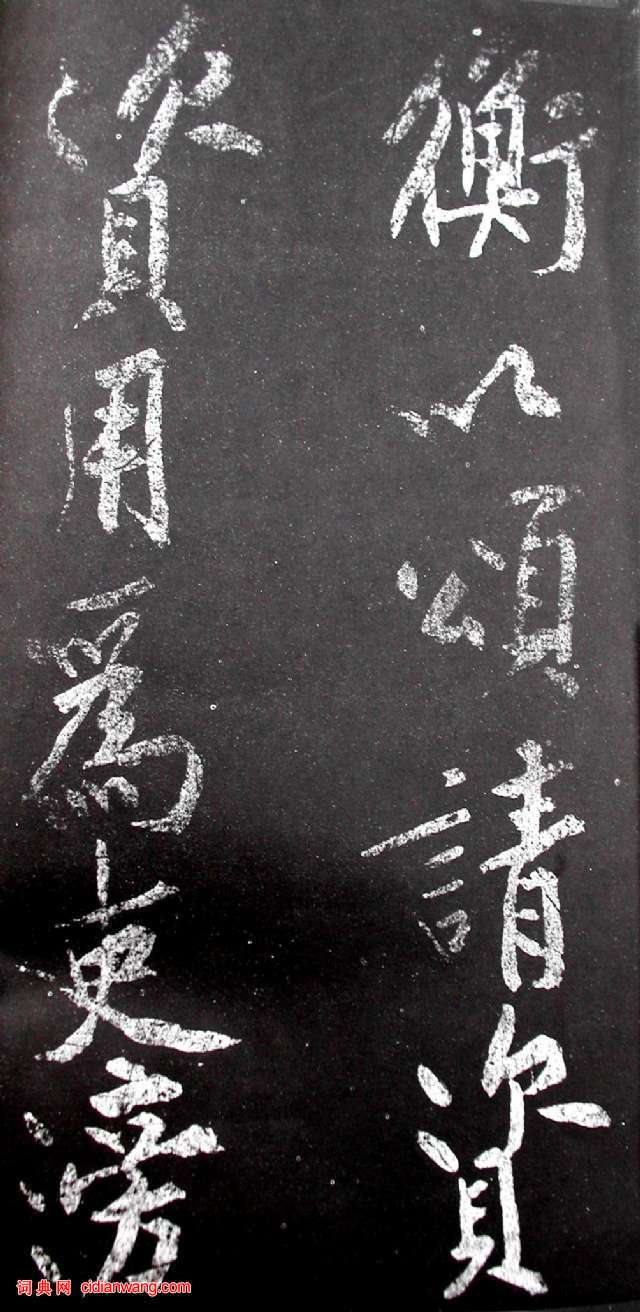 衡以頌請資
資用為吏滂
词典网 cidianwang.com